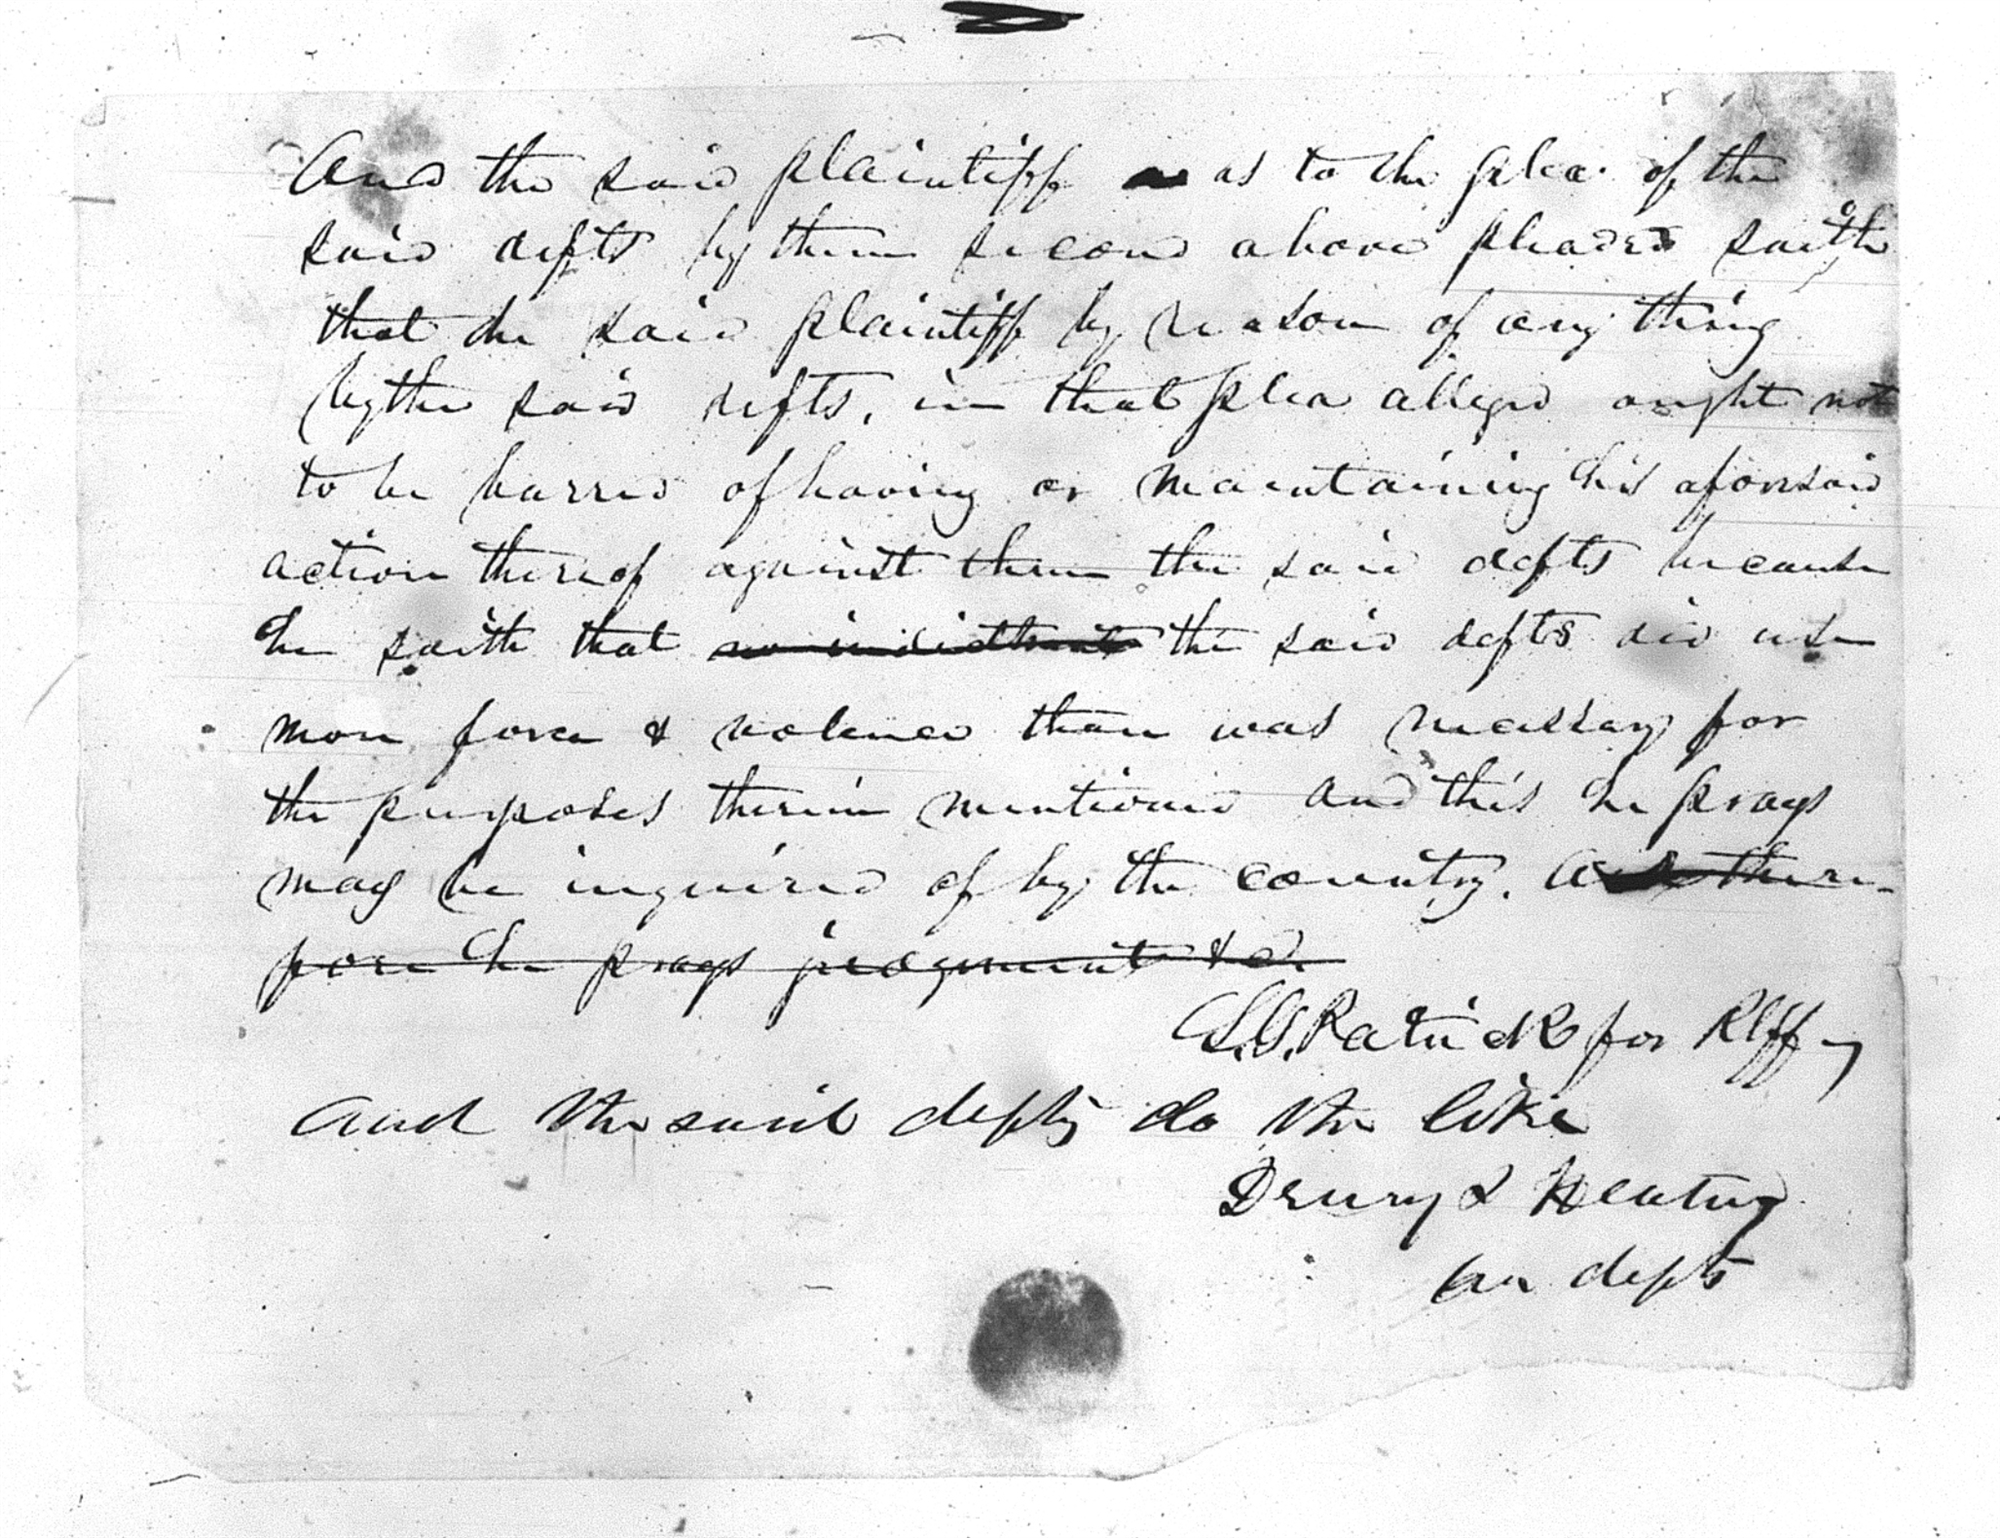 And the said plaintiff as to the plea of the
said defts by them second above pleaded saith
that he said plaintiff by reason of any thing
by the said defts, in that plea alleged ought not
to be barred of having or maintaining his aforesaid
action thereof against them the said defts because
he saith that no indictment the said defts did use
more force & violence than was necessary for
the purposes therein mentioned and this he prays
may be inquired of by the country. And there-
fore he prays judgment &c
Patrick for Plff
And the said defts do the like
Drury &
for defts